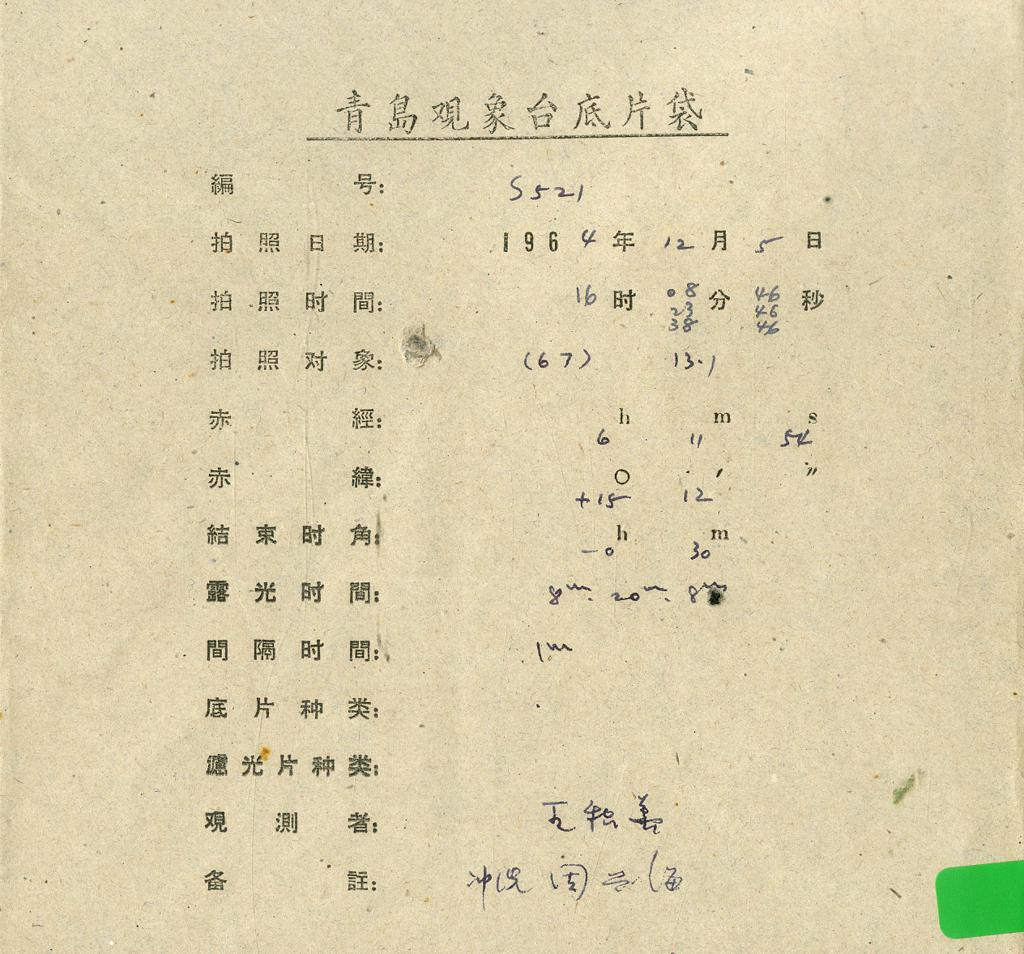 青島观象台底片袋
編号: S521
拍照日期: 1964年12月5日
拍照时間: 16时08分46秒
23 46
38 46
拍照对象: (67) 13.1
赤經: h m s
6 11 54
赤緯: ○ ′ ″
+15 12
結束时角: h m
-0 30
露光时間: 8m. 20m. 8m
間隔时間: 1m
底片种类:
濾光片种类:
观測者: 王
备註: 冲洗 周 海